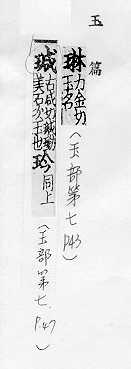 玉篇
琳 力金切
玉名
(玉部第七 P43)
瑊 古咸切瑊玏
美石次玉也
玪 同上
(玉部第七. P.47)